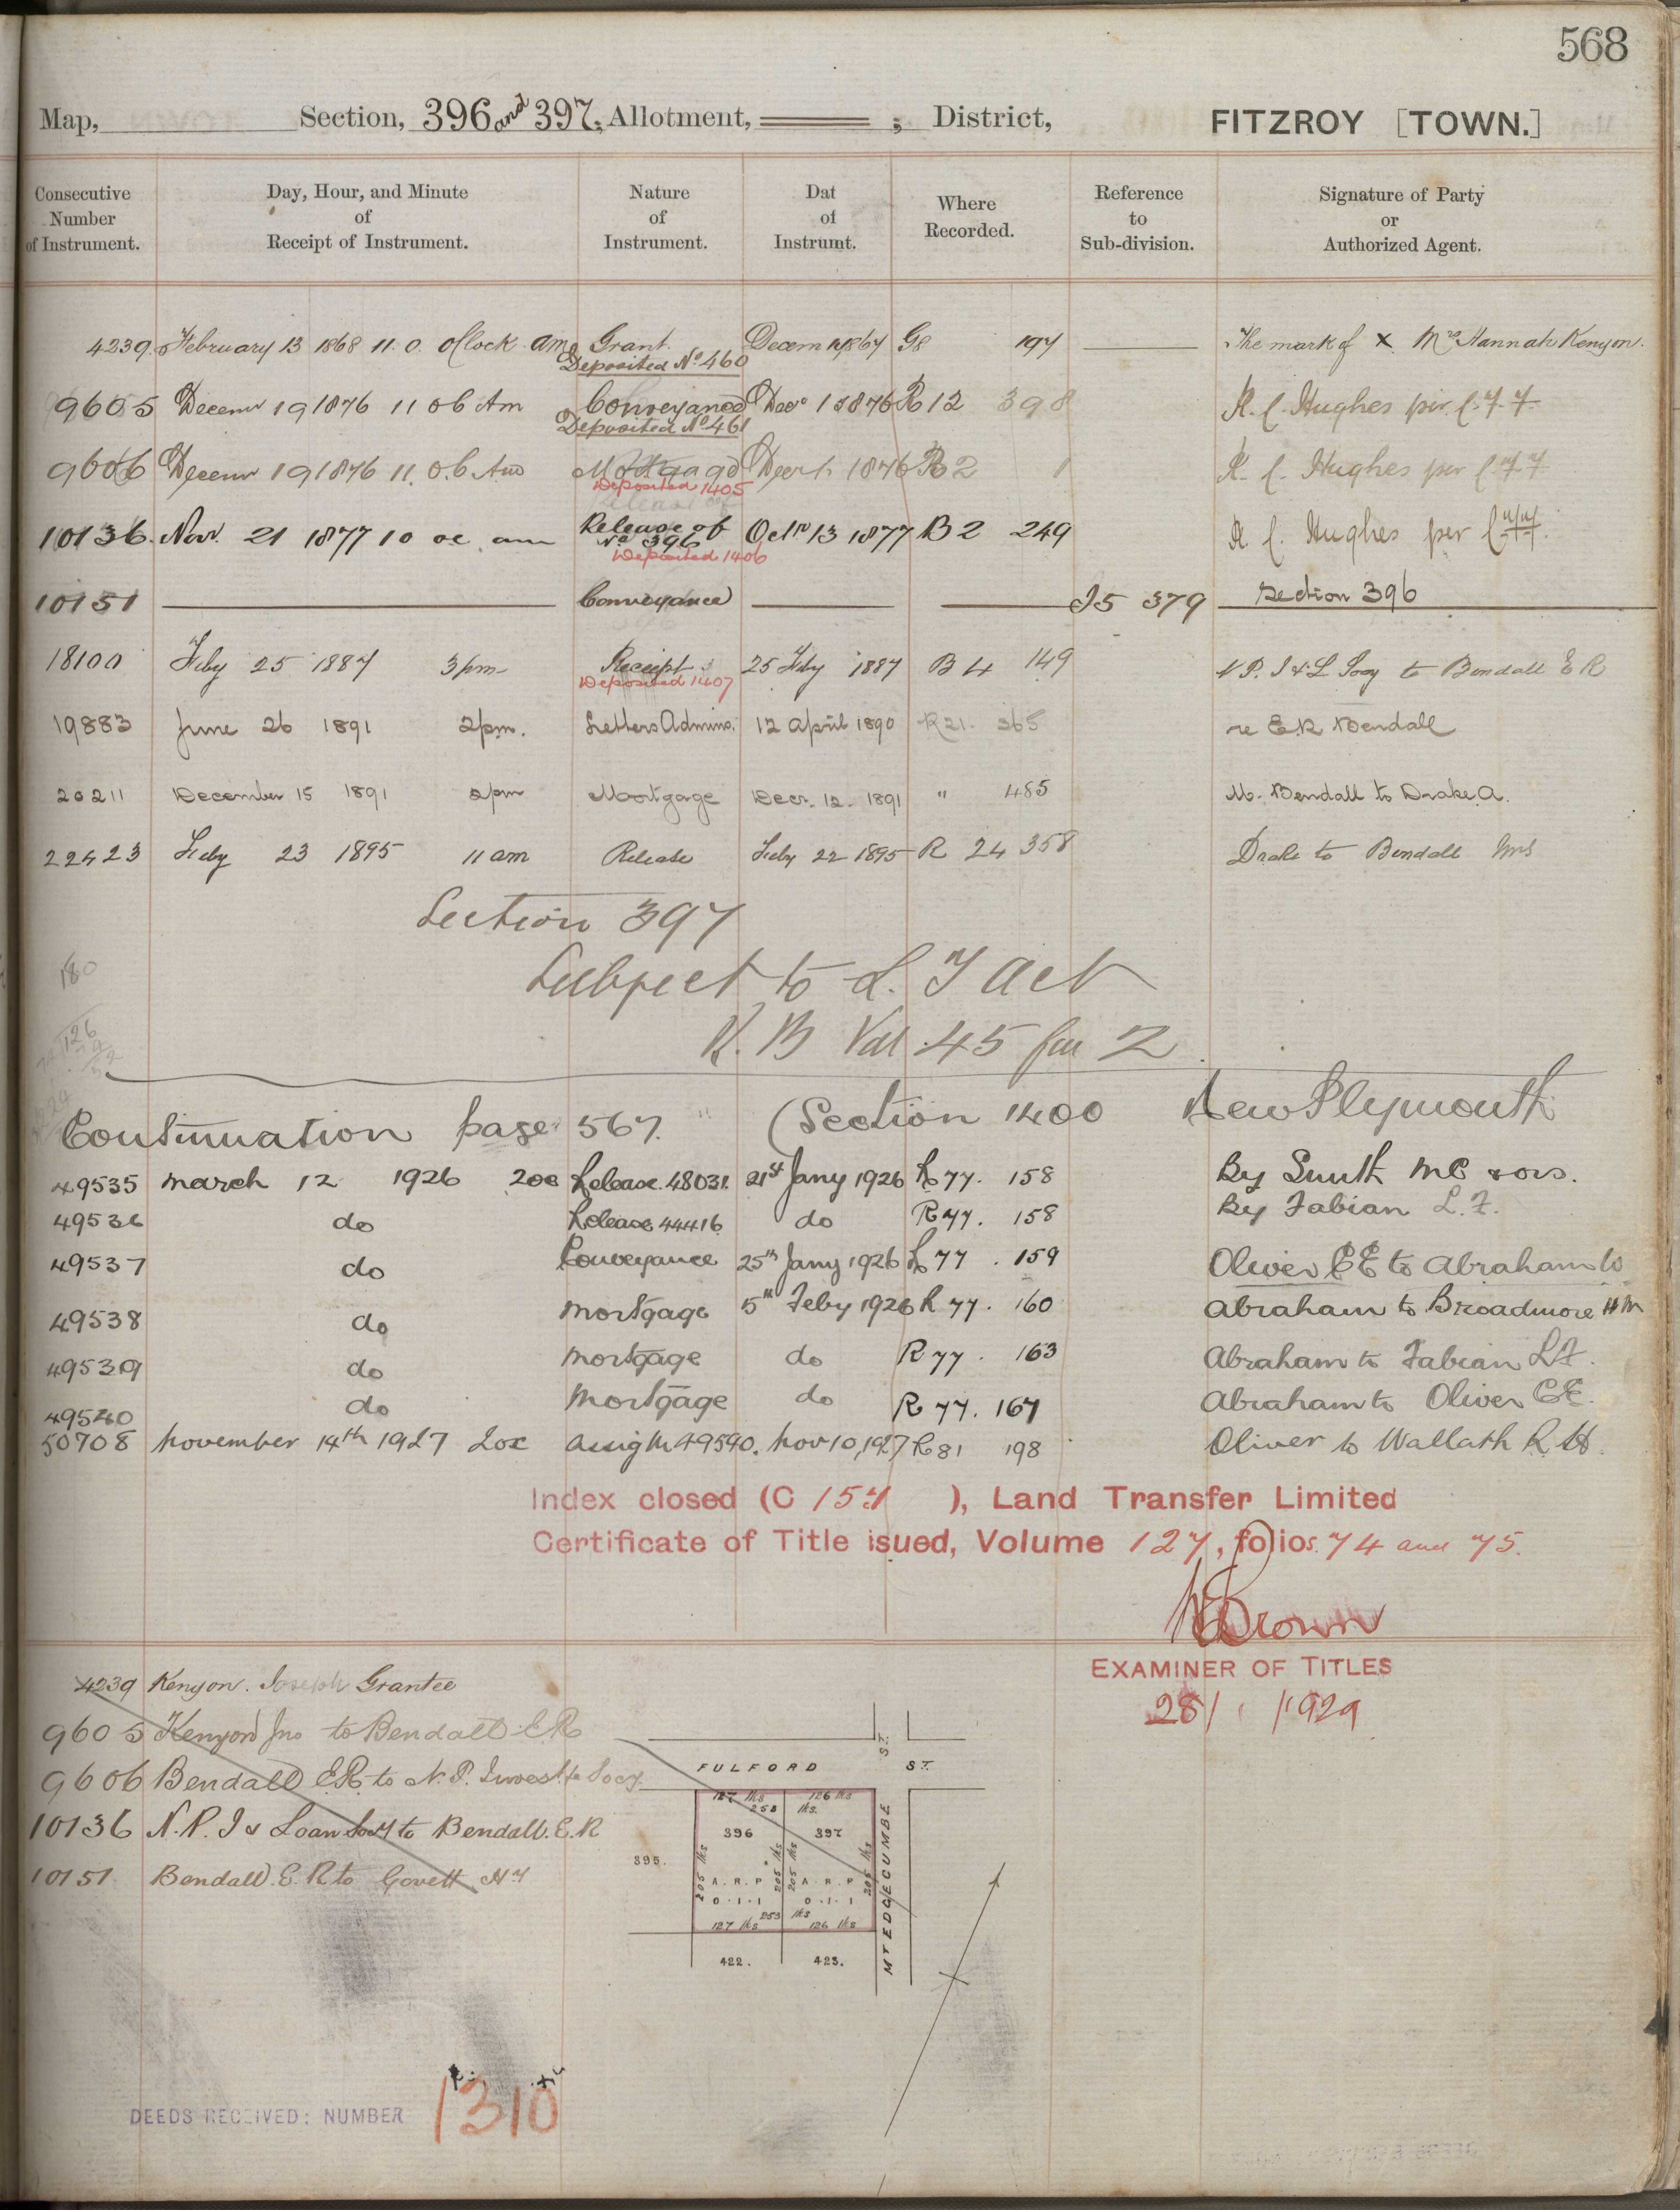 568
Map, Section, 396 and 397, Allotment, ; District, FITZROY [TOWN.]
Consecutive Number of Instrument. Day, Hour, and Minute of Receipt of Instrument. Nature of Instrument. Dat of Instrumt. Where Recorded. Reference to Sub-division. Signature of Party or Authorized Agent.
4239 February 13 1868 11. 0. oClock am Grant. G8 197 The mark of X Mrs Hannah Kenyon.
Deposited No 460
9605 Decemr 19 1876 11 0 6 Am Conveyance Decr 1 1876 R 12 398 R. C. Hughes per
Deposited No 461
9606 Decemr 19 1876 11. 0. 6 Am Mortgage Decr 1 1876 B 2 1 R. C. Hughes per
Deposited 1405
10136 Novr. 21 1877 10 oc am Release of No 396 Octr 13 1877 B 2 249 R. C. Hughes per
Deposited 1406
10151 Conveyance I5 379 Section 396
18100 Feby 25 1887 3pm Receipt 25 Feby 1887 B 4 149 N P. I & L Socy to Bendall E R
Deposited 1407
19883 June 26 1891 2pm. Letters Admins. 12 April 1890 R 21. 365 re E.R Bendall
20211 December 15 1891 2pm Mortgage Decr. 12. 1891 " 485 M. Bendall to Drake. A.
22423 Feby 23 1895 11 am Release Feby 22 1895 R 24 358 Drake to Bendall Mrs
Section 397
Subject to L. T Act
R. B Vol 45 fol 2
180
126
Continuation page 567. " (Section 1400 New Plymouth
49535 march 12 1926 2oc Release 48031. 21st Jany 1926 R 77. 158 By Smith MC & ors.
49536 do Release 44416 do R 77. 158 By Fabian L. F.
49537 do Conveyance 25th Jany 1926 R 77. 159 Oliver C E to Abraham W
49538 do mortgage 5th Feby 1926 R 77. 160 Abraham to Broadmore H M
49539 do mortgage do R 77. 163 Abraham to Fabian L F.
49540 do mortgage do R 77. 167 Abraham to Oliver C E.
50708 November 14th 1927 2oc Assig M 49540. Nov 10, 1927 R 81 198 Oliver to Wallath R H.
Index closed (C 154 ), Land Transfer Limited
Certificate of Title issued, Volume 127, folios 74 and 75.
Brown
EXAMINER OF TITLES
28/ 1929
4239 Kenyon. Joseph Grantee
9605 Kenyon Jno to Bendall E R
9606 Bendall E.R. to N. P. Investt Socy
10136 N. P. I & Loan Socy to Bendall. E. R
10151 Bendall. E. R to Govett H
FULFORD ST.
ST.
127 lks 126 lks
253 lks.
396 397
395.
205 lks 205 lks 205 lks 205 lks
A. R. P A. R. P
0. 1. 1 0. 1. 1
253 lks
127 lks 126 lks
MT EDGECUMBE
422. 423.
DEEDS RECEIVED: NUMBER 1310